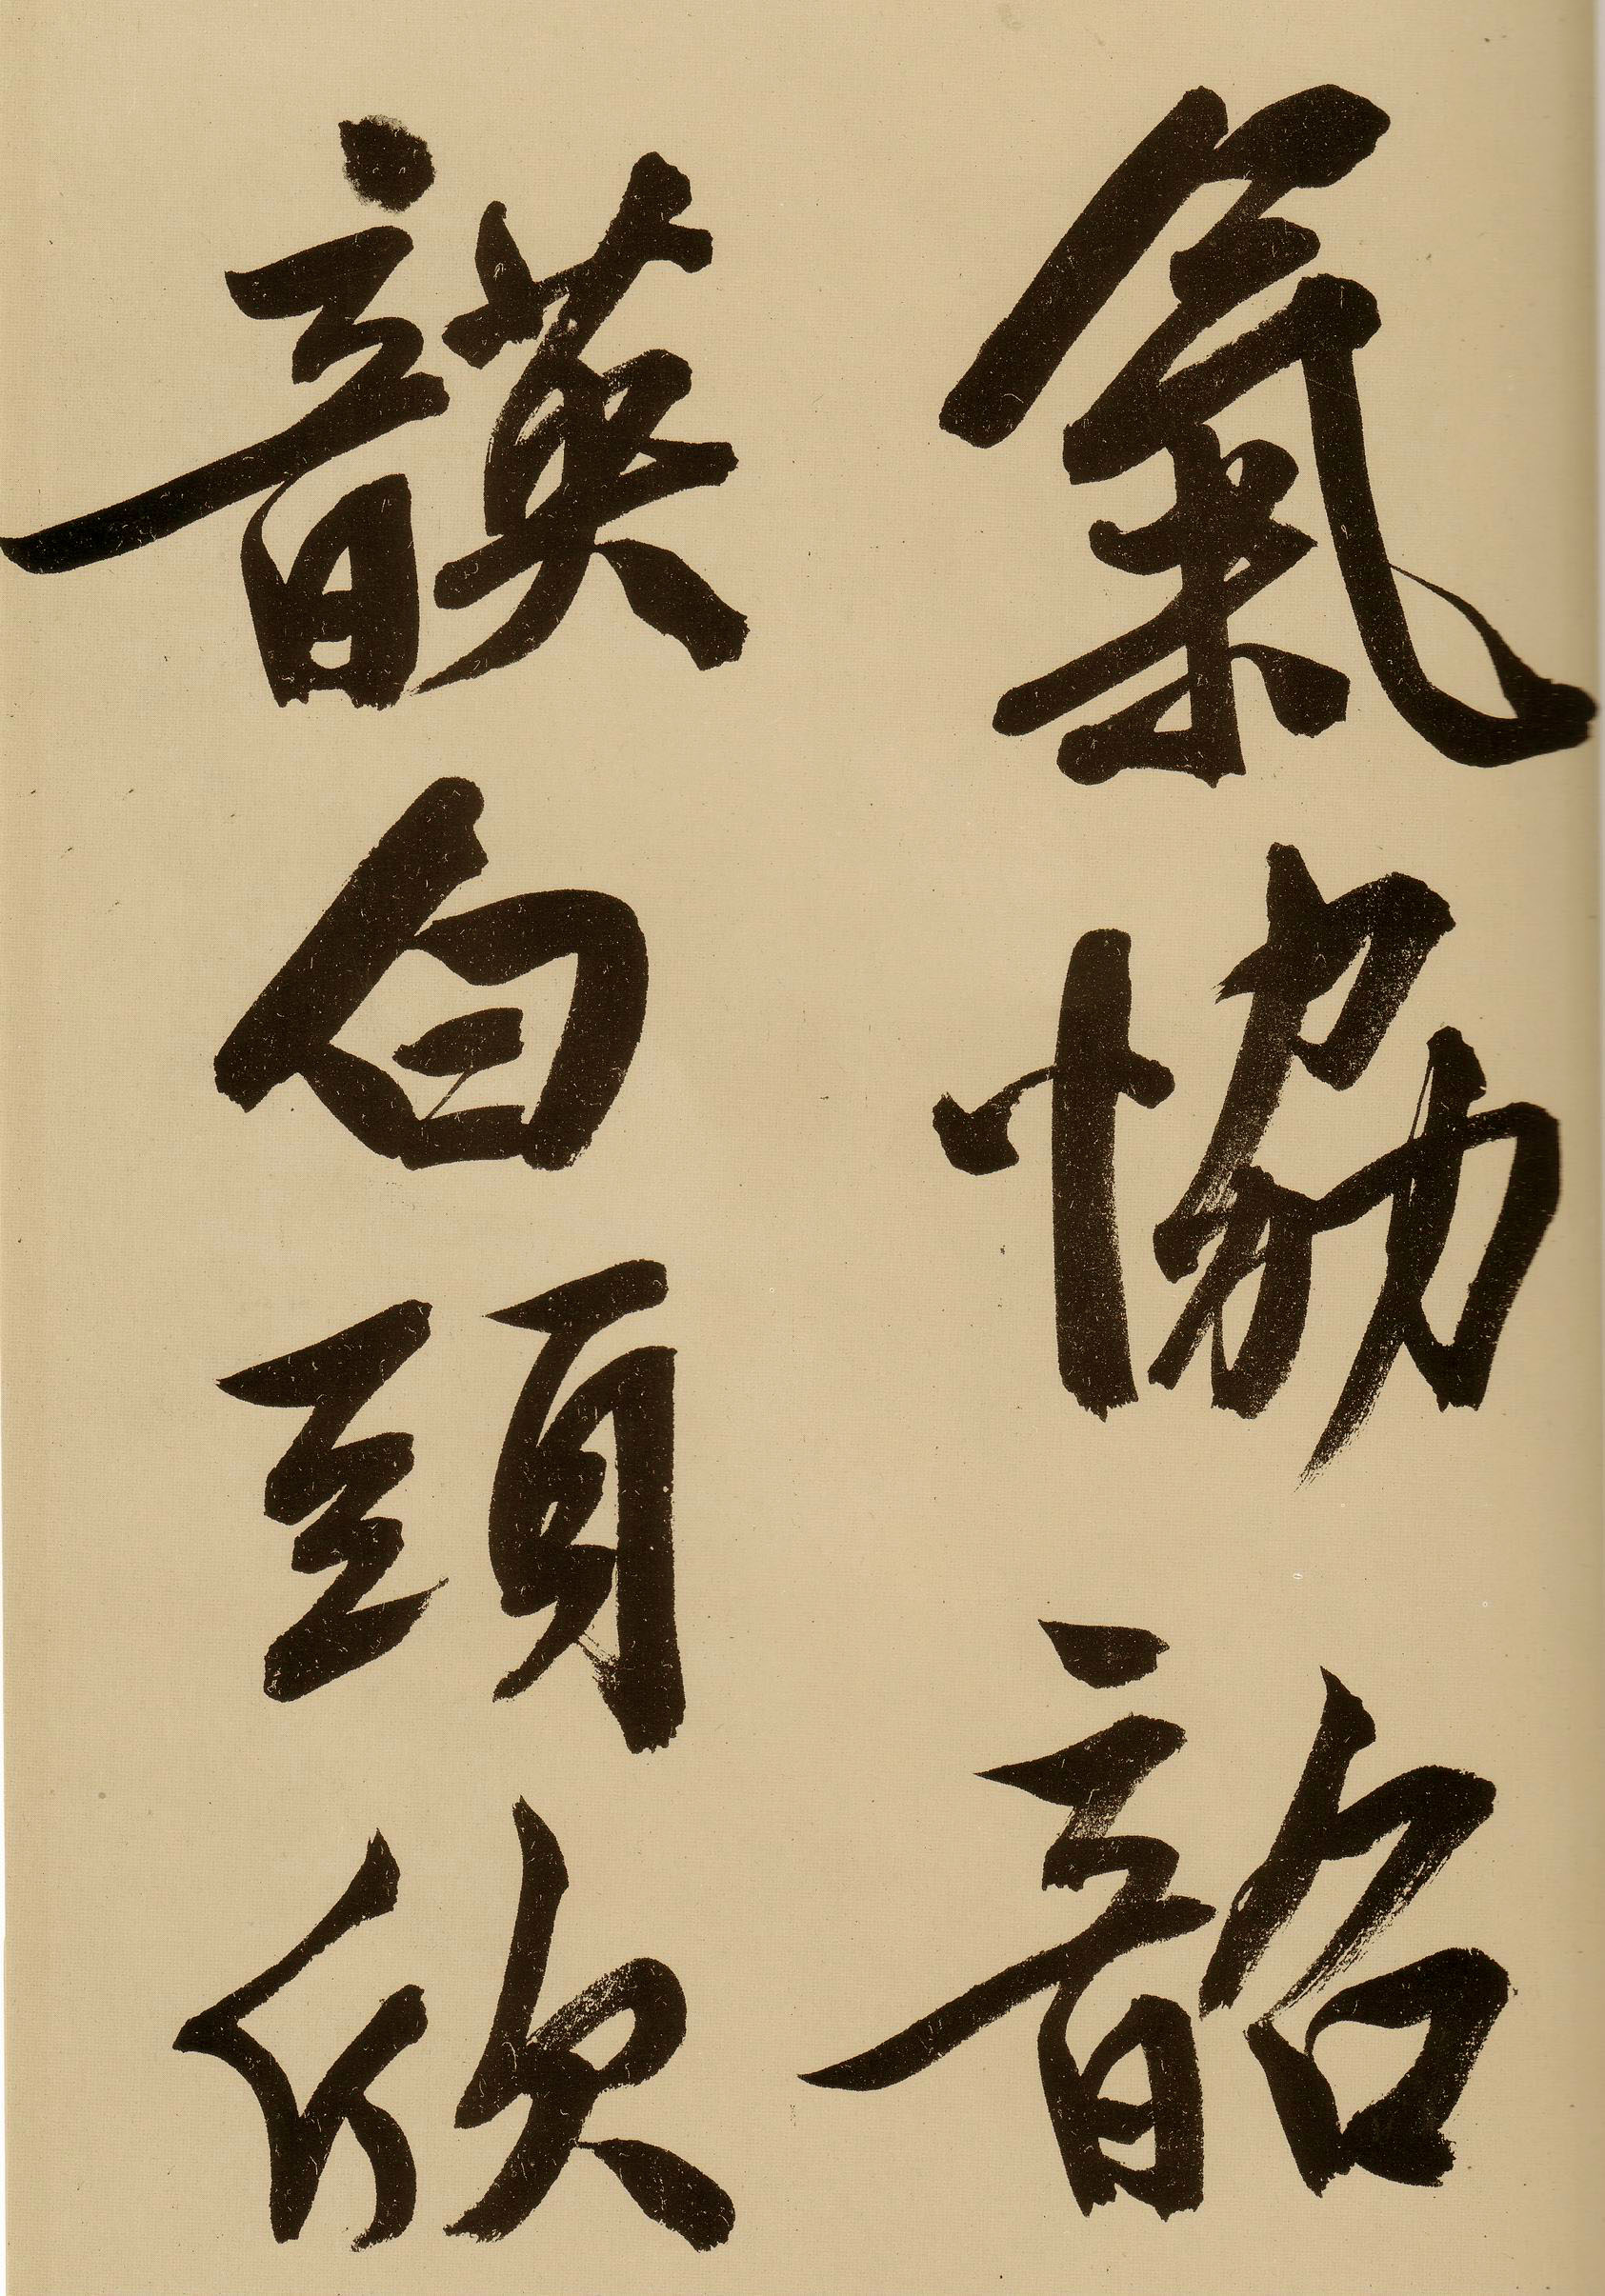 氣恊韶
韺白頭欣